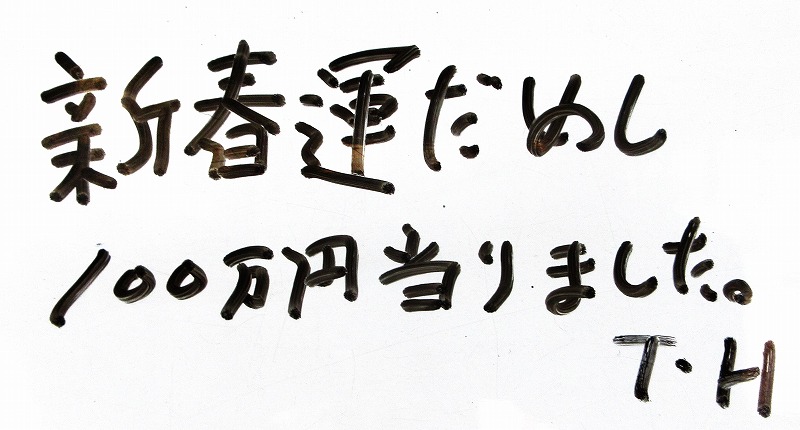 新春運だめし
100万円当りました。
T・H